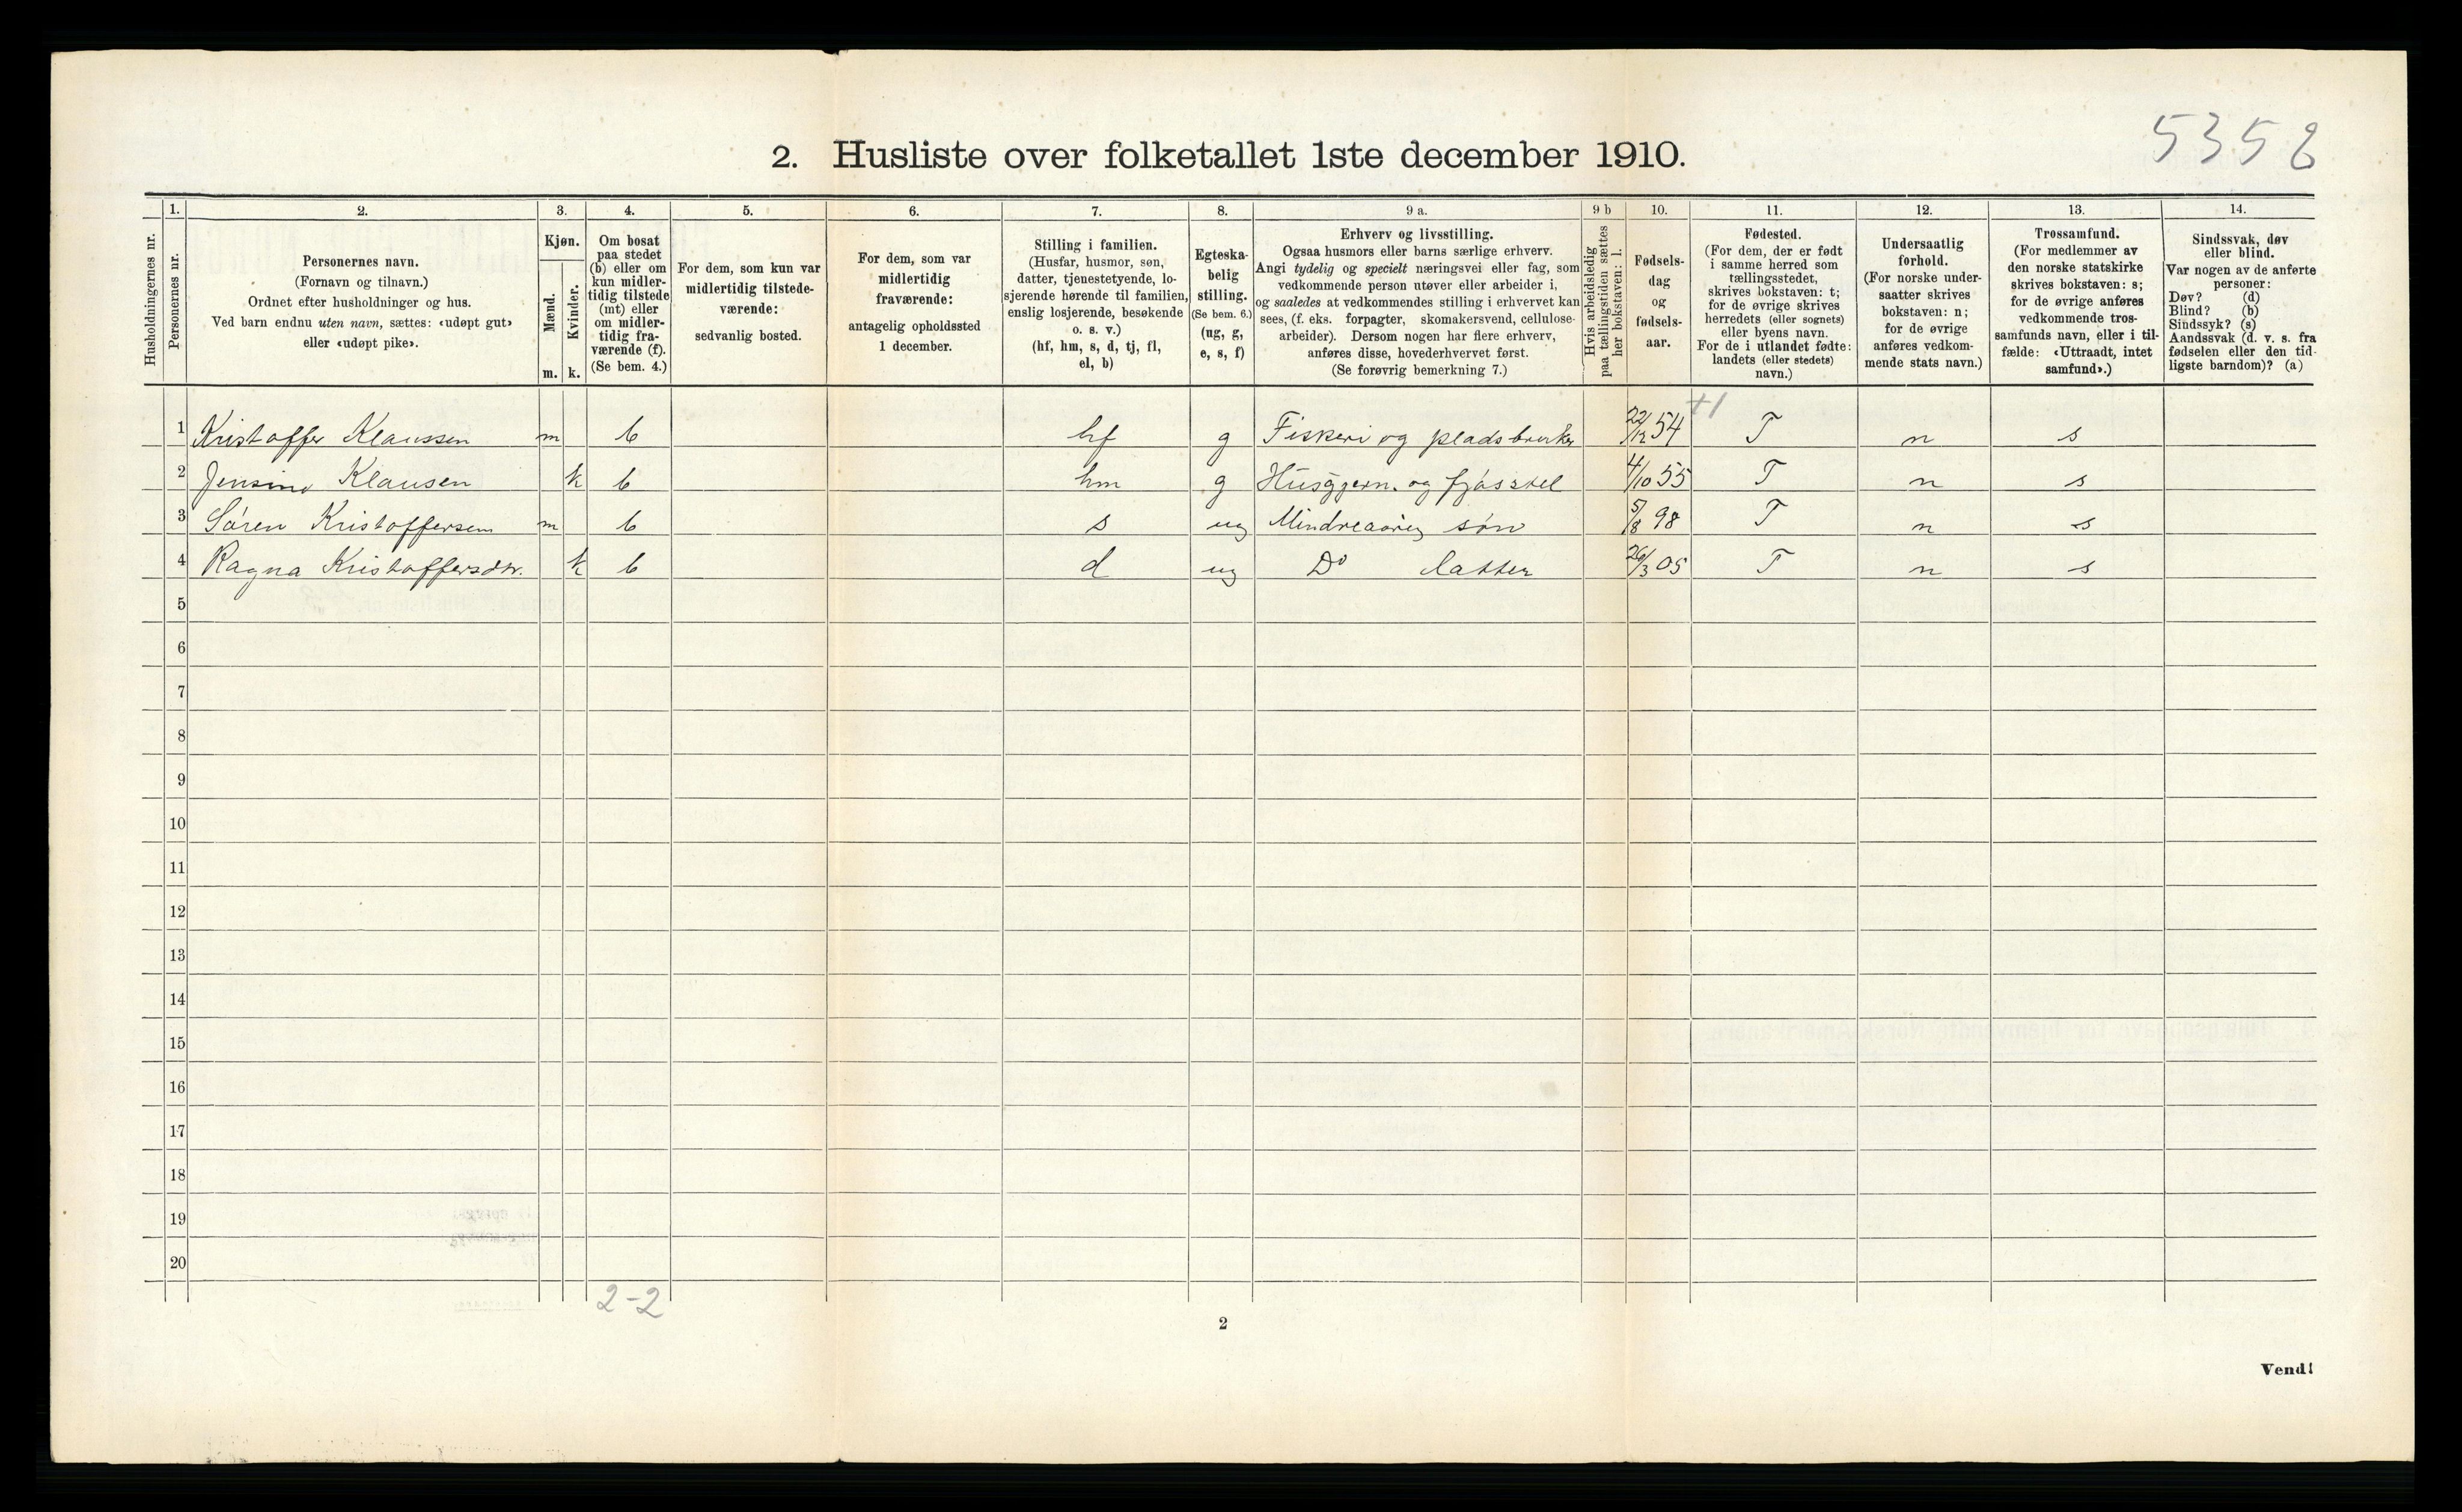 5358
2. Husliste over folketallet 1ste december 1910.
Husholdningernes nr.
1.
Personernes nr.
2.
Personernes navn.
(Fornavn og tilnavn.)
Ordnet efter husholdninger og hus.
Ved barn endnu uten navn, sættes: «udøpt gut»
eller «udøpt pike».
3.
Kjøn.
Mænd.
Kvinder.
m. k.
4.
Om bosat
paa stedet
(b) eller om
kun midler-
tidig tilstede
(mt) eller
om midler-
tidig fra-
værende (f).
(Se bem. 4.)
5.
For dem, som kun var
midlertidig tilstede-
værende:
sedvanlig bosted.
6.
For dem, som var
midlertidig
fraværende:
antagelig opholdssted
1 december.
7.
Stilling i familien.
(Husfar, husmor, søn,
datter, tjenestetyende, lo-
sjerende hørende til familien,
enslig losjerende, besøkende
o. s. v.)
(hf, hm, s, d, tj, fl,
el, b)
8.
Egteska-
belig
stilling.
(Se bem. 6.)
(ug, g,
e, s, f)
9 a.
Erhverv og livsstilling.
Ogsaa husmors eller barns særlige erhverv.
Angi tydelig og specielt næringsvei eller fag, som
vedkommende person utøver eller arbeider i,
og saaledes at vedkommendes stilling i erhvervet kan
sees, (f. eks. forpagter, skomakersvend, cellulose-
arbeider). Dersom nogen har flere erhverv,
anføres disse, hovederhvervet først.
(Se forøvrig bemerkning 7.)
9 b
Hvis arbeidsledig
paa tællingstiden sættes
her bokstaven: l.
10.
Fødsels-
dag
og
fødsels-
aar.
11.
Fødested.
(For dem, der er født
i samme herred som
tællingsstedet,
skrives bokstaven: t;
for de øvrige skrives
herredets (eller sognets)
eller byens navn.
For de i utlandet fødte:
landets (eller stedets)
navn.)
12.
Undersaatlig
forhold.
(For norske under-
saatter skrives
bokstaven: n;
for de øvrige
anføres vedkom-
mende stats navn.)
13.
Trossamfund.
(For medlemmer av
den norske statskirke
skrives bokstaven: s;
for de øvrige anføres
vedkommende tros-
samfunds navn, eller i til-
fælde: «Uttraadt, intet
samfund».)
14.
Sindssvak, døv
eller blind.
Var nogen av de anførte
personer:
Døv? (d)
Blind? (b)
Sindssyk? (s)
Aandssvak (d. v. s. fra
fødselen eller den tid-
ligste barndom)? (a)
1 Kristoffer Klaussen m b hf g Fiskeri og pladsbruker 22/12 54 T n s
2 Jensine Klausen k b hm g Husgjern. og fjösstel 4/10 55 T n s
3 Søren Kristoffersen m b s ug Mindreaarig søn 5/8 98 T n s
4 Ragna Kristoffersdtr. k b d ug Do datter 26/3 05 T n s
5
6
7
8
9
10
11
12
13
14
15
16
17
18
19
20
2-2
2
Vend!